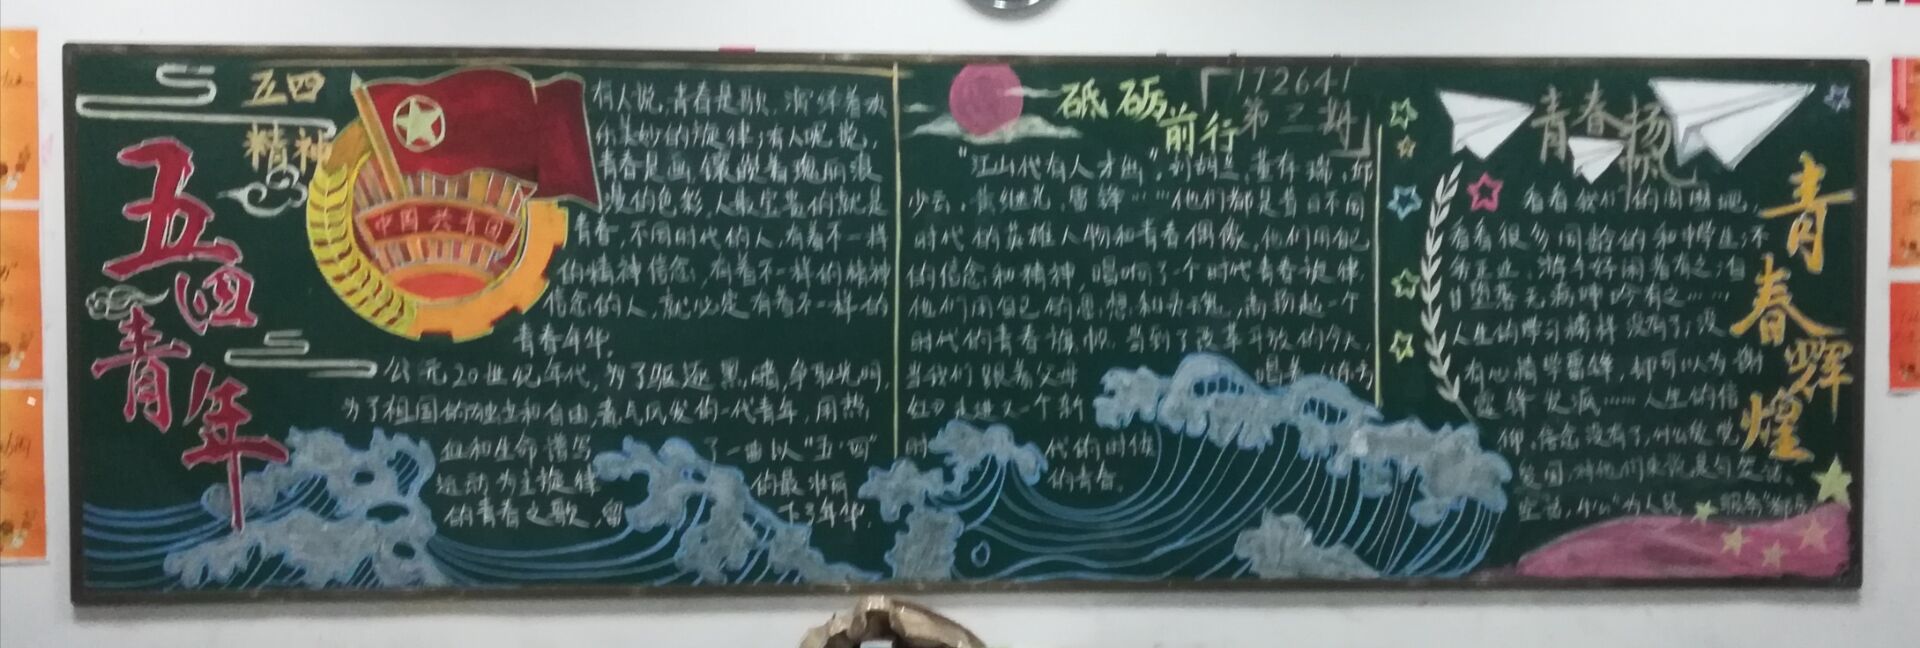 五四
精神
五四青年
中国共青团
有人说,青春是歌,演绎着欢
乐美妙的旋律;有人呢说,
青春是画,镶嵌着瑰丽浪
漫的色彩,人最宝贵的就是
青春,不同时代的人,有着不一样
的精神信念,有着不一样的精神
信念的人,就必定有着不一样的
青春年华。
公元20世纪年代,为了驱逐黑暗,争取光明,
为了祖国的独立和自由,意气风发的一代青年,用热
血和生命谱写了一曲以“五·四”
运动为主旋律的最准
的青春之歌,留下了年华,
砥砺
前行
「172641
第二期」
“江山代有人才出”,刘胡兰,董存瑞,邱
少云,黄继光,雷锋……他们都是青日不同
时代的英雄人物和青春偶像,他们用自己
的信念和精神,唱响了一个时代青春旋律,
他们用自己的思想和灵魂,高扬起一个
时代的青春旗帜,当到了改革开放的今天,
当我们跟着父母唱着《东方
红》走进又一个新
时代的时候
的青春。
青春扬帆
青春辉煌
看看我们的周围吧,
看看很多同龄的和中学生:不
务正业,游手好闲者有之,
日堕落无病呻吟有之……
人生的学习榜样没有了,没
有心情学雷锋,却可以为谢
霆锋发疯……人生的信
仰,信念没有了,什么爱党
爱国,对他们来说是句空话。
空话,什么“为人民服务”都